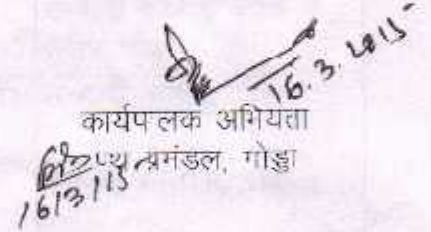 16.3.2015
कार्यपालक अभियंता
पथ प्रमंडल, गोड्डा
16/3/15